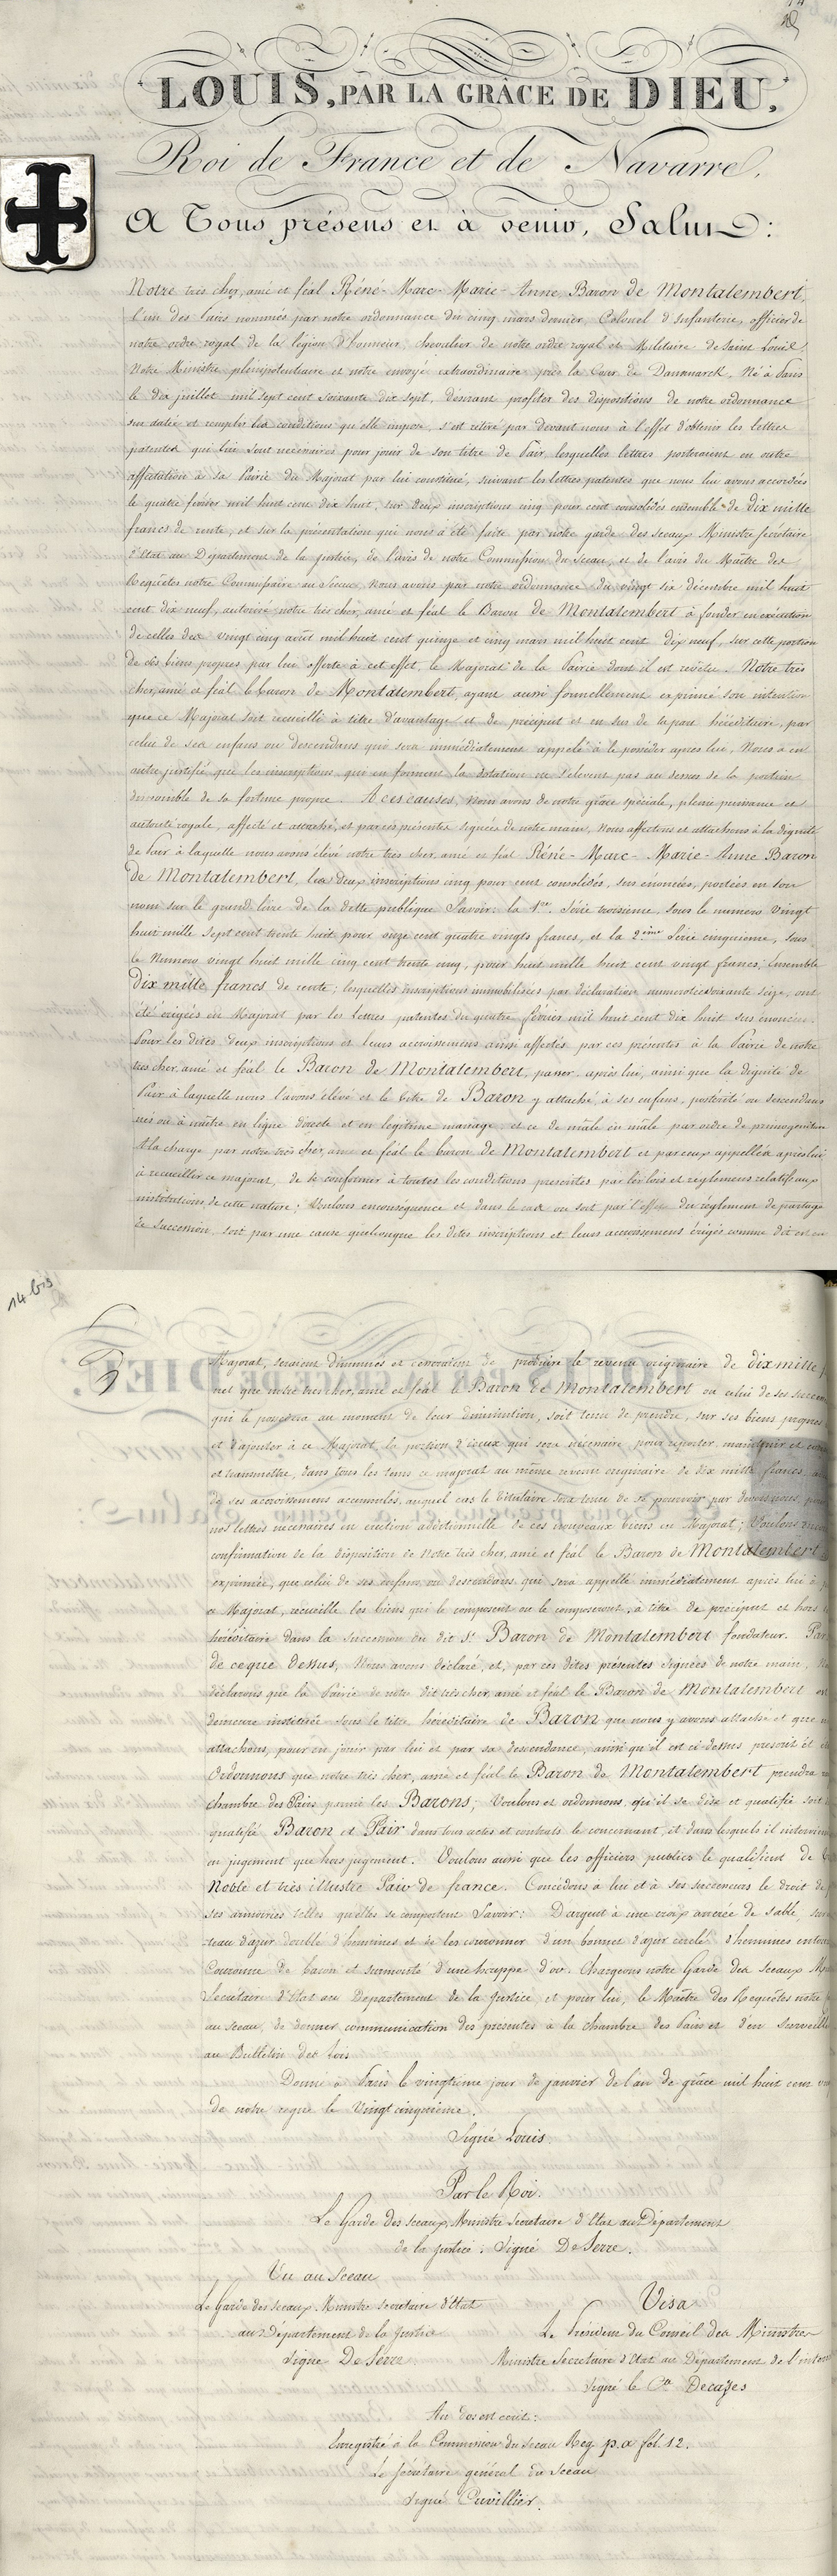 LOUIS, PAR LA GRÂCE DE DIEU,
Roi de France et de Navarre,
A Tous présens et à venir, Salut:
Notre très cher, amé et féal Réné-Marc-Marie-Anne, Baron de Montalembert,
l'un des Pairs nommés par notre ordonnance du cinq mars dernier, Colonel d'infanterie, officier de
notre ordre royal de la légion d'honneur, chevalier de notre ordre royal et Militaire de Saint Louis,
Notre Ministre plénipotentiaire et notre envoyé extraordinaire près la Cour de Dannmarck, Né à Paris
le dix juillet mil sept cent soixante dix sept, desirant profiter des dispositions de notre ordonnance
sus datée et remplir les conditions qu'elle impose, s'est retiré par devant nous à l'effet d'obtenir les lettres
patentes qui lui sont nécessaires pour jouir de son titre de Pair, lesquelles lettres porteraient en outre
affectation à sa Pairie du Majorat par lui constitué, suivant les lettres patentes que nous lui avons accordées
le quatre février mil huit cent dix huit, sur deux inscriptions cinq pour cent consolidés ensemble de dix mille
francs de rente, et sur la présentation qui nous a été faite par notre garde des sceaux Ministre secrétaire
d'Etat au Département de la justice, de l'avis de notre Commission du Sceau, et de l'avis du Maître des
Requêtes notre Commissaire au Sceau, Nous avons par notre ordonnance du vingt six décembre mil huit
cent dix neuf, autorisé notre très cher, amé et féal le Baron de Montalembert à fonder en exécution
de celles des vingt cinq août mil huit cent quinze et cinq mars mil huit cent dix neuf, sur cette portion
de ses biens propres par lui offerte à cet effet, le Majorat de la Pairie dont il est revêtu. Notre très
cher, amé et féal le Baron de Montalembert, ayant aussi formellement exprimé son intention
que ce Majorat soit recueilli à titre d'avantage et de préciput et en sus de la part héréditaire, par
celui de ses enfans ou descendans qui sera immédiatement appelé à le posséder après lui, Nous a en
outre justifié que les inscriptions qui en forment la dotation ne s'élevent pas au dessus de la portion
disponible de sa fortune propre. A ces causes, nous avons de notre grâce spéciale, pleine puissance et
autorité royale, affecté et attaché, et par ces présentes signées de notre main, Nous affectons et attachons à la dignité
de Pair à laquelle nous avons élevé notre très cher, amé et féal Réné-Marc-Marie-Anne Baron
de Montalembert, les deux inscriptions cinq pour cent consolidés, sus énoncées, portées en son
nom sur le grand livre de la dette publique Savoir: la 1ère. Série troisième, sous le numero vingt
huit mille sept cent trente huit pour onze cent quatre vingts francs, et la 2ème Série cinquième, sous
le Numero vingt huit mille cinq cent trente cinq, pour huit mille huit cent vingt francs; Ensemble
dix mille francs de rente; lesquelles inscriptions immobilisées par déclaration numerotée soixante seize, ont
été érigées en Majorat par les lettres patentes du quatre février mil huit cent dix huit sus énoncées.
Pour les dites deux inscriptions et leurs accroissemens ainsi affectés par ces présentes à la Pairie de notre
très cher, amé et féal le Baron de Montalembert, passer après lui, ainsi que la dignité de
Pair à laquelle nous l'avons élevé et le titre de Baron y attaché, à ses enfans, postérité ou descendans
nés ou à naître en ligne directe et en légitime mariage et ce de mâle en mâle par ordre de primogéniture
A la charge par notre très cher, amé et féal le baron de Montalembert et par ceux appellés après lui
à recueillir ce majorat, de se conformer à toutes les conditions prescrites par les lois et règlemens relatifs aux
institutions de cette nature; Voulons en conséquence et dans le cas où soit par l'effet du réglement de partage
de succession, soit par une cause quelconque les dites inscriptions et leurs accroissemens érigés comme dit est en
14 bis
Majorat, seraient diminués et cesseraient de produire le revenu originaire de dix mille
net que notre très cher, amé et féal le Baron de Montalembert ou celui de ses
qui le possédera au moment de leur diminution, soit tenu de prendre, sur ses biens propres
et d'ajouter à ce Majorat, la portion d'iceux qui sera nécessaire, pour reporter, maintenir et
et transmettre, dans tous les tems ce majorat au même revenu originaire de dix mille francs
de ses accroissemens accumulés, auquel cas le Titulaire sera tenu de se pourvoir par devers nous,
nos lettres nécessaires en érection additionnelle de ces nouveaux biens en Majorat; Voulons
confirmation de la disposition de Notre très cher, amé et féal le Baron de Montalembert
exprimée, que celui de ses enfans ou descendans qui sera appellé immédiatement après lui à
ce Majorat, recueille les biens qui le composent ou le composeront, à titre de préciput et hors
héréditaire dans la succession du dit Sr Baron de Montalembert fondateur. Par
de ce que dessus, Nous avons déclaré, et, par ces dites présentes signées de notre main,
déclarons que la Pairie de notre dit très cher, amé et féal le Baron de Montalembert
demeure instituée sous le titre héréditaire de Baron que nous y avons attaché et que
attachons, pour en jouir par lui et par sa descendance, ainsi qu'il est ci-dessus prescrit et
Ordonnons que notre très cher, amé et féal le Baron de Montalembert prendra
chambre des Pairs parmi les Barons; Voulons et ordonnons qu'il se dise et qualifie soit
qualifié Baron et Pair dans tous actes et contrats le concernant, et dans lesquels il
en jugement que hors jugement. Voulons aussi que les officiers publics le qualifient de
Noble et très illustre Pair de france. Concédons à lui et à ses successeurs le droit de
ses armoiries telles qu'elles se comportent Savoir: D'argent à une croix ancrée de sable,
teau d'azur doublé d'hermines et de les couronner d'un bonnet d'azur cerclé d'hermines
Couronne de baron et surmonté d'une houppe d'or. Chargeons notre Garde des Sceaux
Secrétaire d'Etat au Departement de la Justice, et pour lui, le Maître des Requêtes notre
au Sceau, de donner communication des présentes à la chambre des Pairs et d'en surveiller
au Bulletin des Lois
Donné à Paris le vingtième jour de janvier de l'an de grâce mil huit cent
de notre regne le Vingt cinquième.
Signé Louis.
Par le Roi.
Le Garde des Sceaux, Ministre Secretaire d'Etat au Département
de la justice. Signé De Serre.
Vu au Sceau
Le Garde des sceaux Ministre secrétaire d'état
au Département de la Justice
Signé De Serre
Visa
Le Président du Conseil des Ministres
Ministre Secretaire d'Etat au Département de
signé le Cte Decazes
Au dos est écrit:
Enregistré à la Commission du Sceau Reg. p. a fol. 12.
Le Sécrétaire général du Sceau
signé Cuvillier.